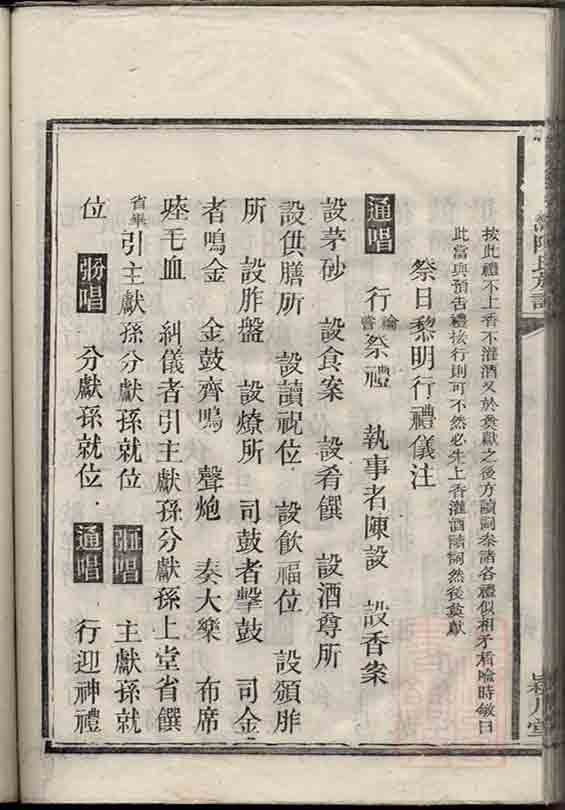 按此禮不上香不灌酒又於奠獻之後方讀詞泰諸各禮似相矛盾喻時敏曰
此當與預告禮挨行則可不然必先上香灌酒讀詞然後奠獻
祭日黎明行禮儀注
通唱 行禴嘗祭禮 執事者陳設 設香案
設茅砂 設食案 設肴饌 設酒尊所
設供膳所 設讀祝位 設飲福位 設頒胙
所 設胙盤 設燎所 司鼓者擊鼓 司金
者鳴金 金鼓齊鳴 聲炮 奏大樂 布席
瘞毛血 糾儀者引主獻孫分獻孫上堂省饌
省畢引主獻孫分獻孫就位 引唱 主獻孫就
位 分唱 分獻孫就位 通唱 行迎神禮
陳氏族譜
潁川堂